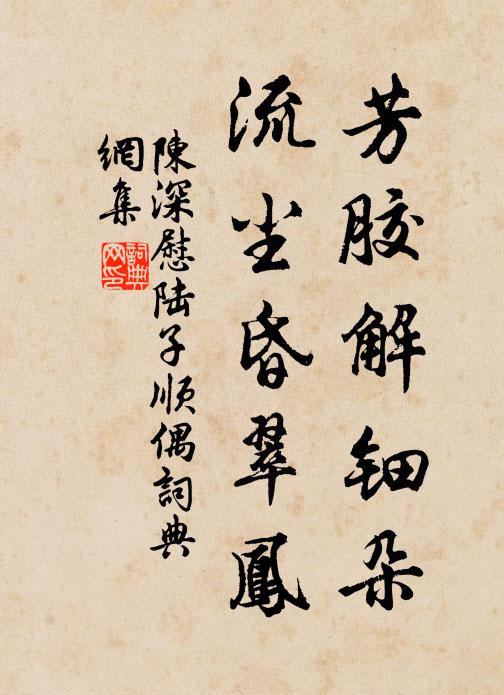 芳胶解钿朵
流尘昏翠鳳
陳深慰陆子顺偶詞典
網集
詞典
网印